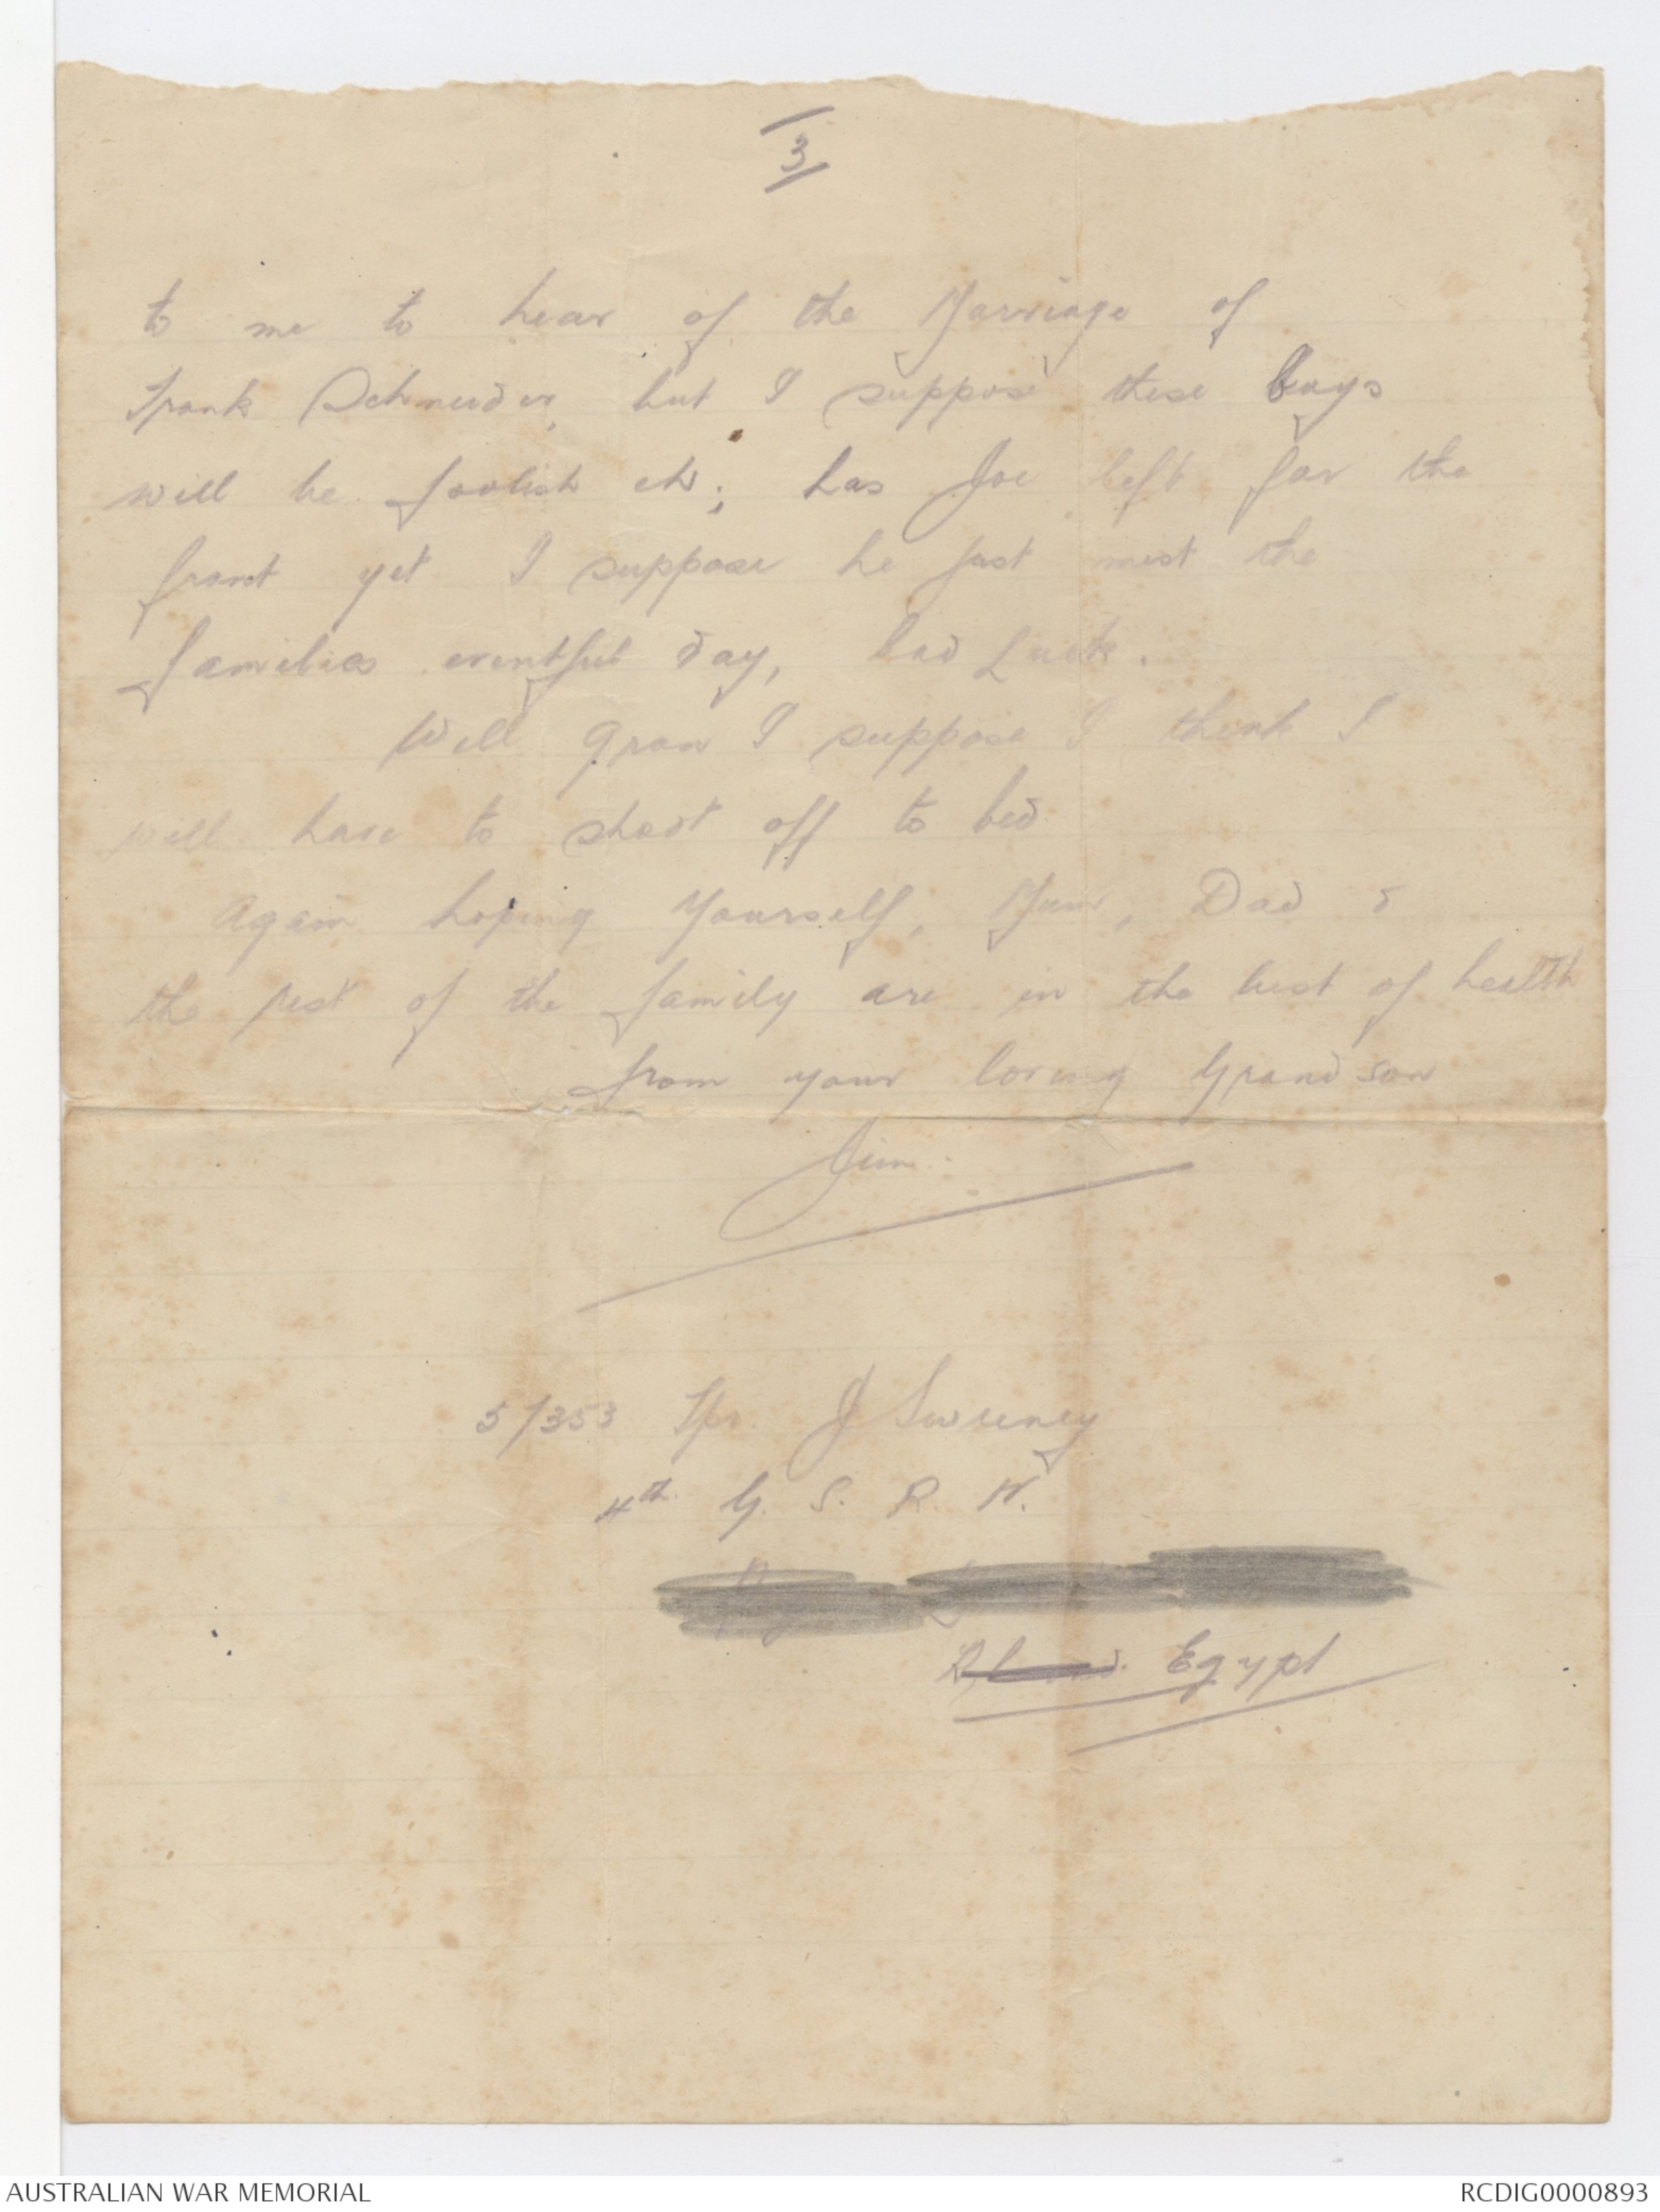 3
to me to hear of the Marriage of
Frank Schneider, but I suppose these boys
will be foolish eh; has Joe left for the
front yet I suppose he just mist the
families eventful day, bad Luck.
Well Gran I suppose I think I
will have to shoot off to bed
Again hoping Yourself, Mum, Dad &
the rest of the family are in the best of health
from your loving Grandson
Jim.
5/353 Tpr. J Sweeney
4th G. S. R. N.
Egypt
AUSTRALIAN WAR MEMORIAL
RCDIG0000893